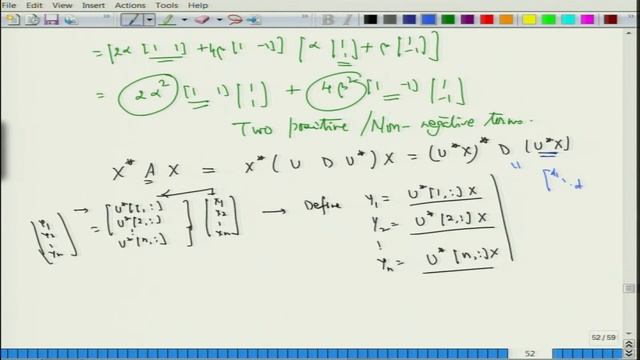 File Edit View Insert Actions Tools Help
= [2α [1 1] + 4β [1 -1]] [α [1 1] + β [1 -1]]
= 2α² [1 1] [1 1] + 4β² [1 -1] [1 -1]
Two positive /Non-negative terms.
X* A X = X* (U D U*) X = (U* X)* D [U* X]
[y₁ y₂ ⋮ yₙ] = [U*[1,:] U*[2,:] ⋮ U*[n,:]] [x₁ x₂ ⋮ xₙ] → Define y₁ = U*[1,:] X
y₂ = U*[2,:] X
⋮
yₙ = U*[n,:] X
52 / 59
52